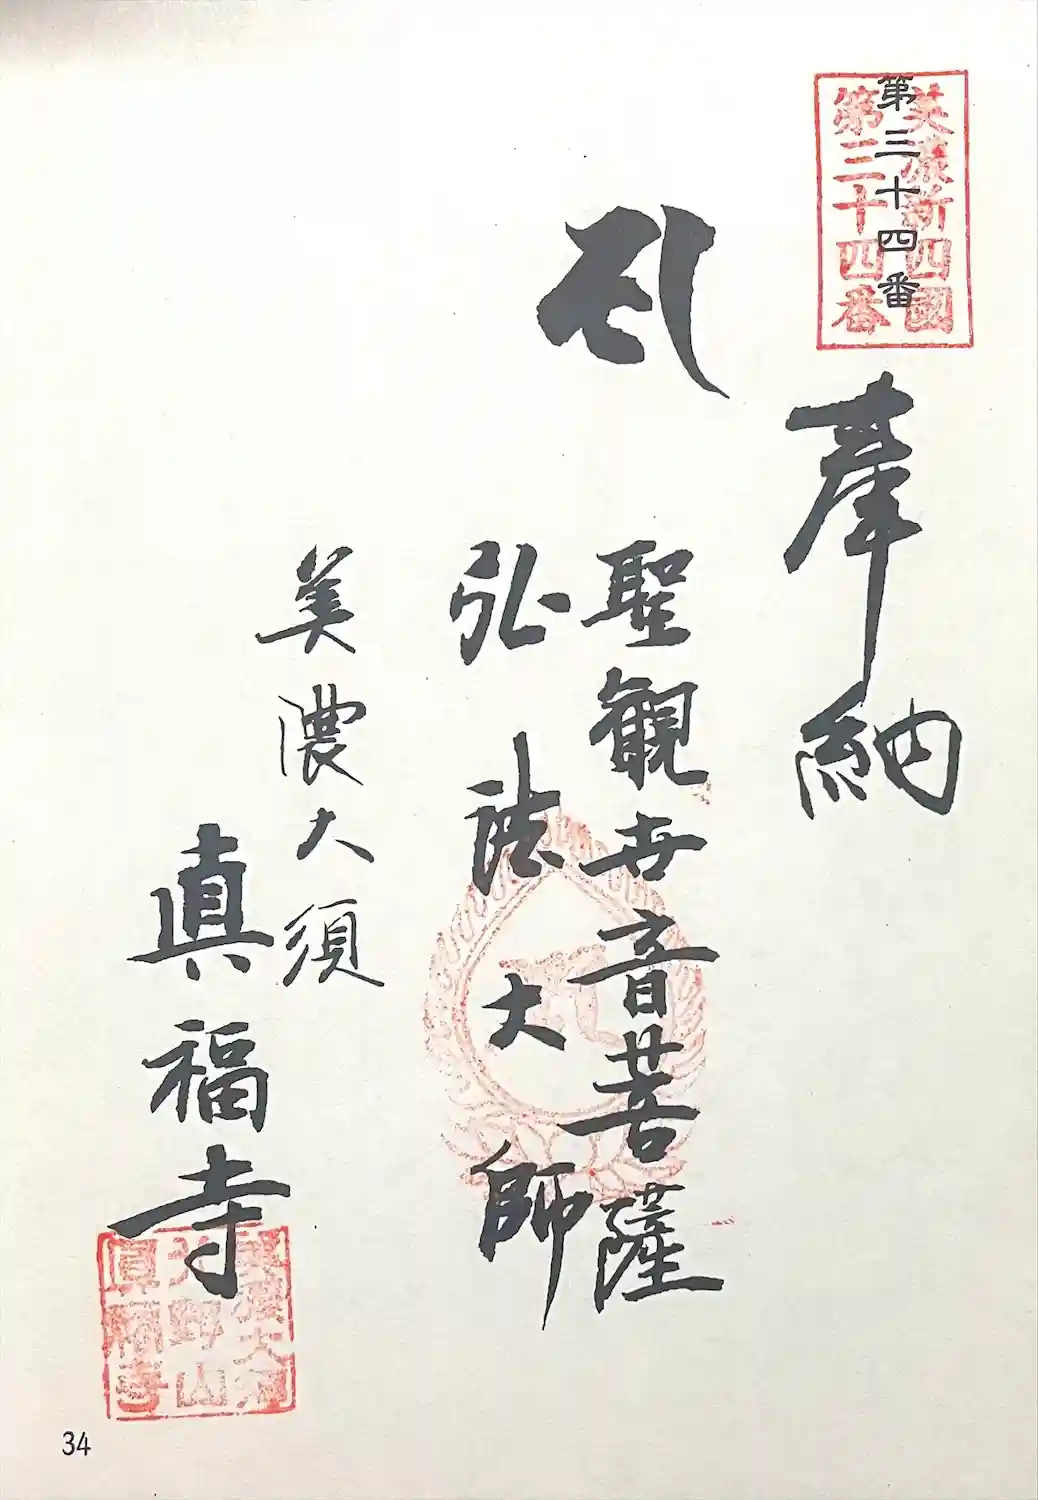 第三十四番
美濃新四國
第三十四番
奉納
聖観世音菩薩
弘法大師
美濃大須
真福寺
美濃大須
北野山
真福寺
34